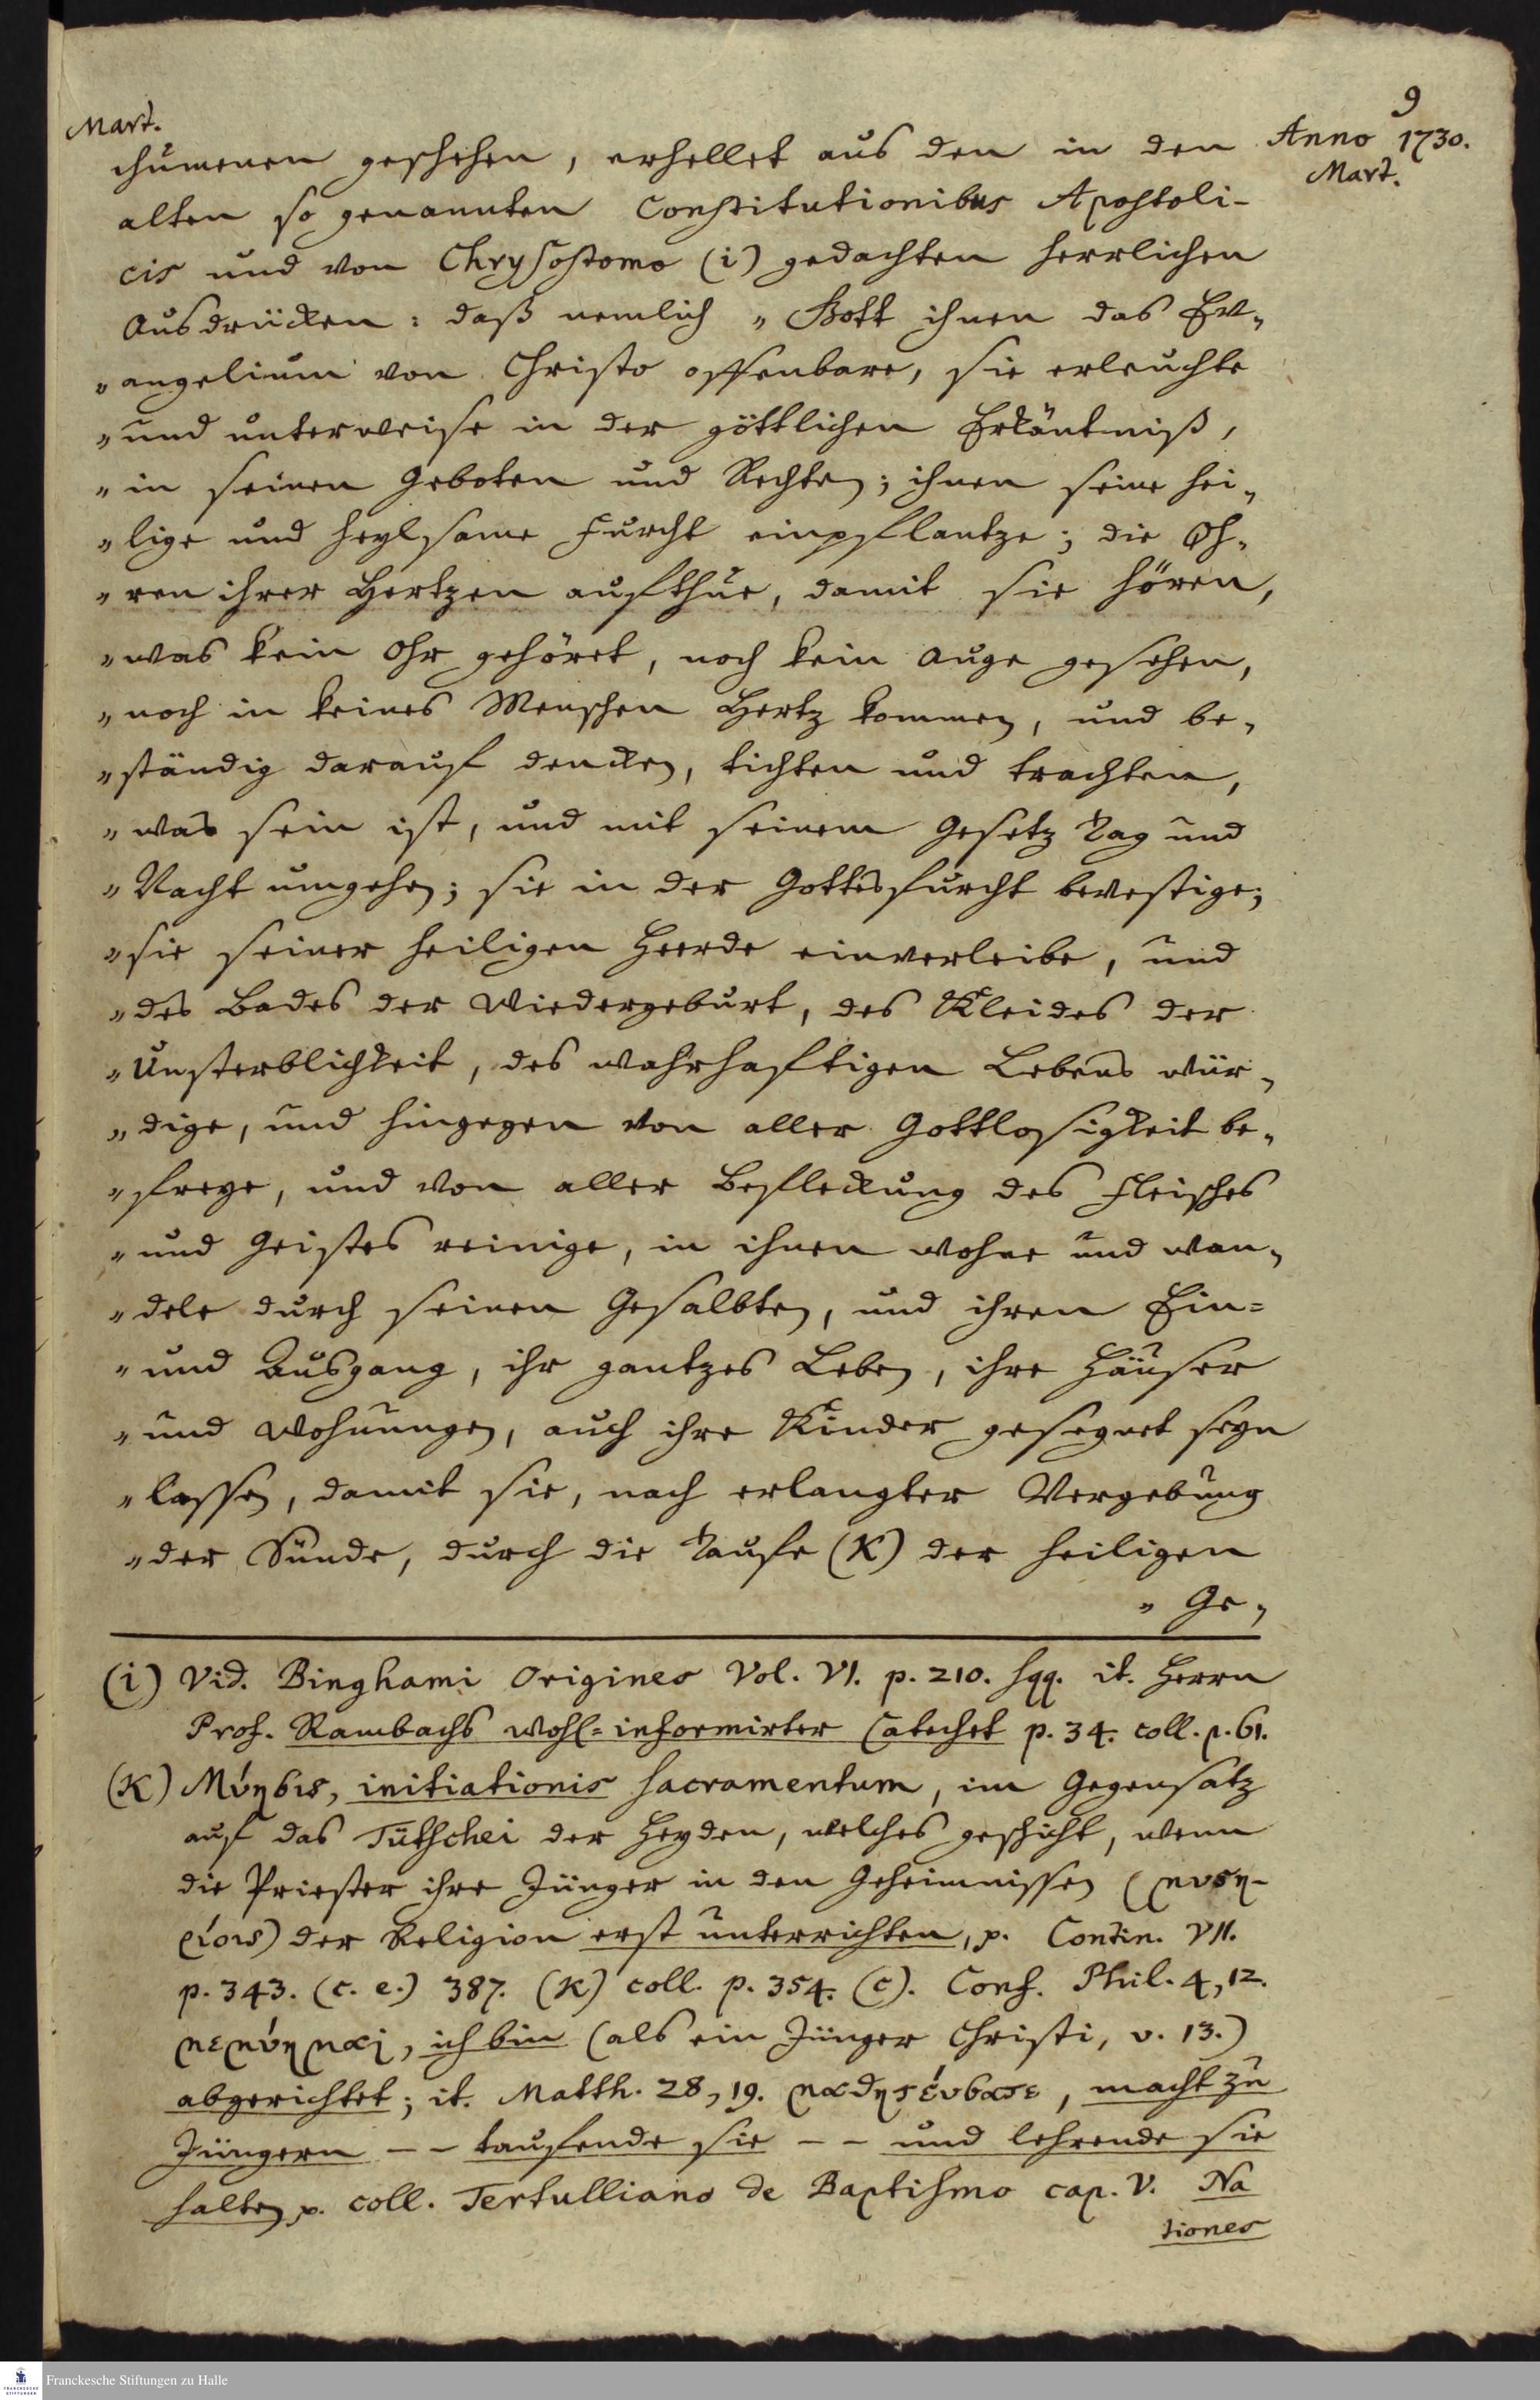 9
Mart.
Anno 1730.
Mart.
chumenen geschehen, erhellet aus den in den
alten so genannten Constitutionibus Apostoli-
cis und von Chrysostomo (i) gedachten herrlichen
Ausdrücken: daß nemlich „Gott ihnen das Ev-
„angelium von Christo offenbare, sie erleuchte
„und unterweise in der göttlichen Erkäntniß,
„in seinen Geboten und Rechten; ihnen seine hei-
„lige und heylsame Furcht einpflantze; die Oh-
„ren ihrer Hertzen aufthue, damit sie hören,
„was kein Ohr gehöret, noch kein Auge gesehen,
„noch in keines Menschen Hertz kommen, und be-
„ständig darauf dencken, tichten und trachten,
„was sein ist, und mit seinem Gesetz Tag und
„Nacht umgehen; sie in der Gottesfurcht bevestige;
„sie seiner heiligen Heerde einverleibe, und
„des Bades der Wiedergeburt, des Kleides der
„Unsterblichkeit, des wahrhaftigen Lebens wür-
„dige, und hingegen von aller Gottlosigkeit be-
„freye, und von aller Befleckung des Fleisches
„und Geistes reinige, in ihnen wohne und wan-
„dele durch seinen Gesalbten, und ihren Ein=
„und Ausgang, ihr gantzes Leben, ihre Häuser
„und Wohnungen, auch ihre Kinder gesegnet seyn
„lassen, damit sie, nach erlangter Vergebung
„der Sünde, durch die Taufe (K) der heiligen
„Ge-
(i) Vid. Binghami Origines Vol. VI. p. 210. sqq. it. Herrn
Prof. Rambachs wohl=informirter Catechet p. 34. coll. p. 61.
(K) Μύησις, initiationis sacramentum, im Gegensatz
auf das Tütschei der Heyden, welches geschicht, wenn
die Priester ihre Jünger in den Geheimnissen (μυςη-
ρίοις) der Religion erst unterrichten, p. Contin. VII.
p. 343. (c. e.) 387. (K) coll. p. 354. (c). Conf. Phil. 4, 12.
μεμύημαι, ich bin (als ein Jünger Christi, v. 13.)
abgerichtet; it. Matth. 28, 19. μαθητεύσατε, macht zu
Jüngern -- taufende sie -- und lehrende sie
halten p. coll. Tertulliano de Baptismo cap. V. Na
tiones
Franckesche Stiftungen zu Halle